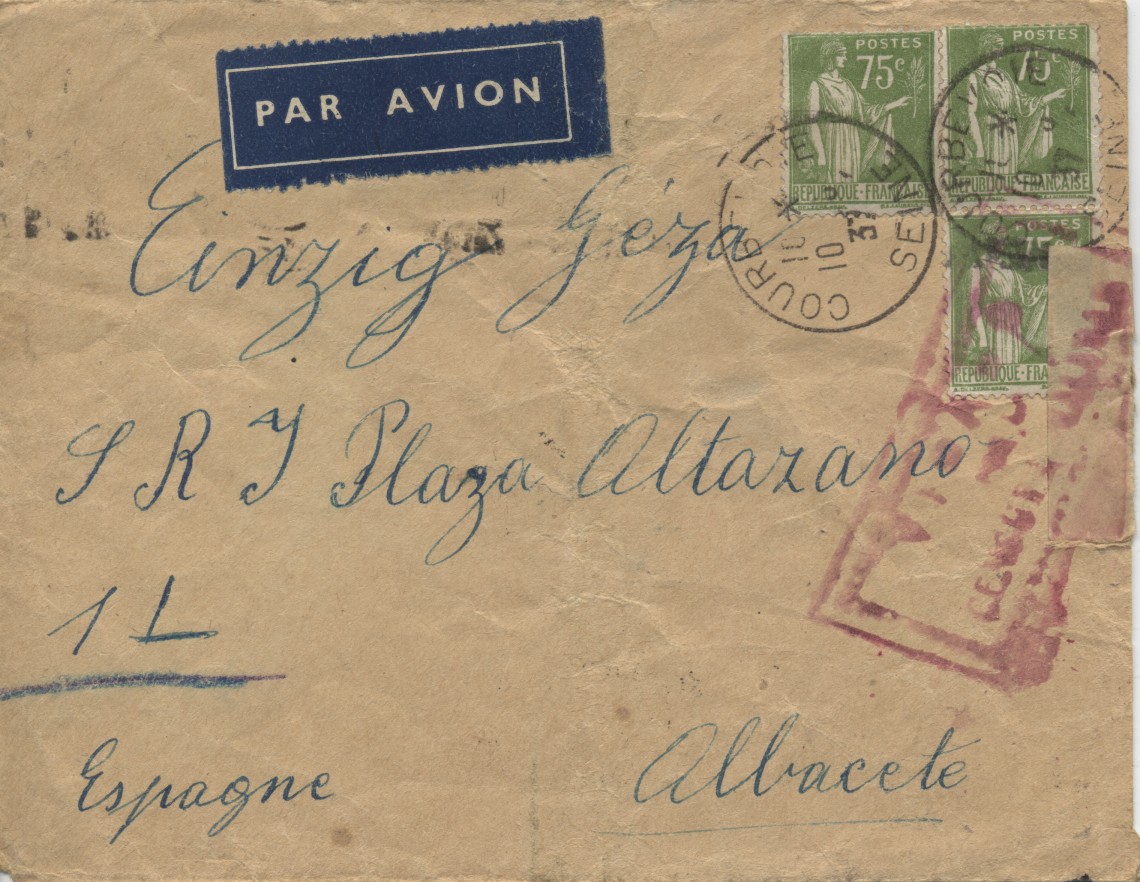 PAR AVION
POSTES
75c
REPUBLIQUE·FRANÇAISE
POSTES
75c
REPUBLIQUE·FRANÇAISE
POSTES
75c
REPUBLIQUE·FRA
COURBE
10
10
37
SEINE
COURBEVOIE
10
37
SEINE
Einzig Géza
S R I Plaza Altazano
1 L
Espagne
Albacete